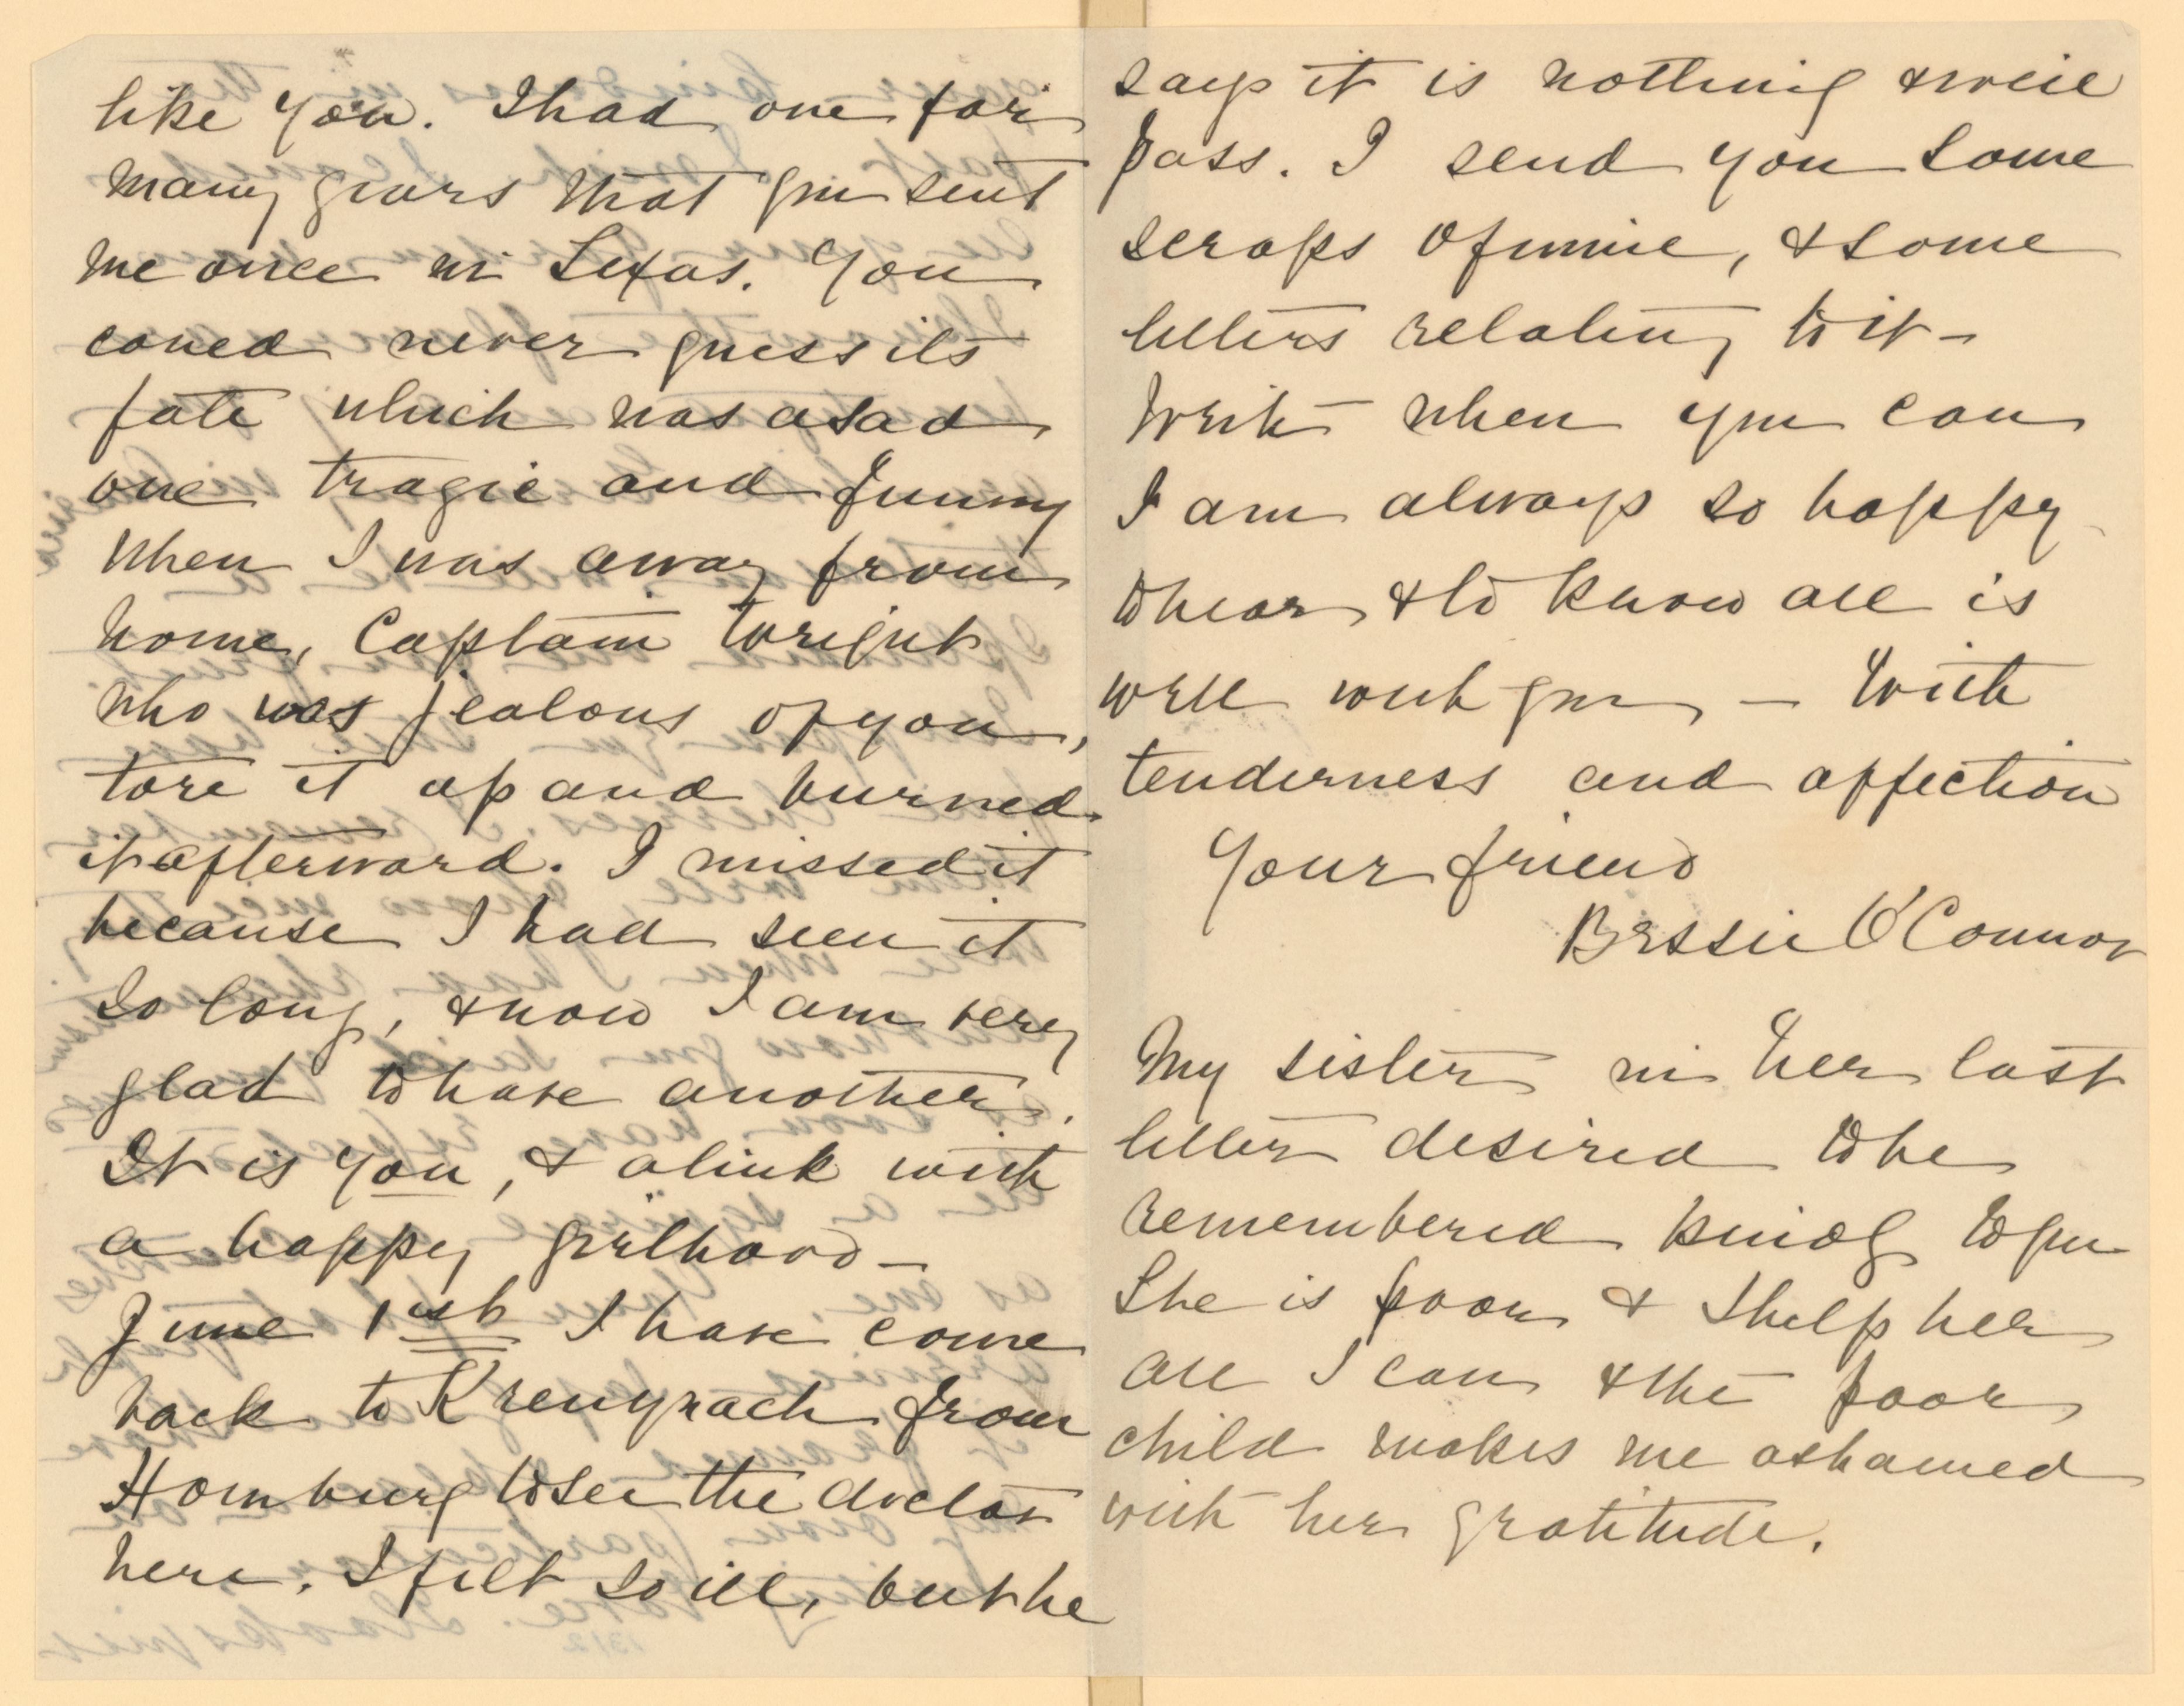 like you. I had one for
many years that you sent
me once in Texas. You
could never guess its
fate which was a sad
one tragic and funny
When I was away from
home, Captain Wright
who was jealous of you,
tore it up and burned
it afterward. I missed it
because I had seen it
so long, & now I am very
glad to have another.
It is you, & a link with
a happy girlhood—
June 1st I have come
back to Kreuznach from
Homburg to see the doctor
here. I felt so ill, but he
says it is nothing & will
pass. I send you some
scraps of mine, & some
letters relating to it—
Write when you can
I am always so happy
to hear & to know all is
well with you — With
tenderness and affection
Your friend
Bessie O'Connor
My sister in her last
letter desired to be
remembered kindly to you
She is poor & I help her
all I can & the poor
child makes me ashamed
with her gratitude.